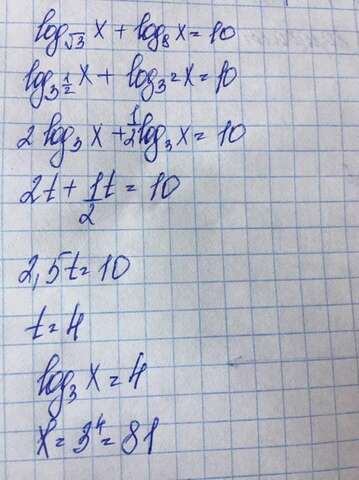 log_√3 x + log_8 x = 10
log_3^(1/2) x + log_3^2 x = 10
2 log_3 x + 1/2 log_3 x = 10
2t + 1/2 t = 10
2,5t = 10
t = 4
log_3 x = 4
x = 3^4 = 81